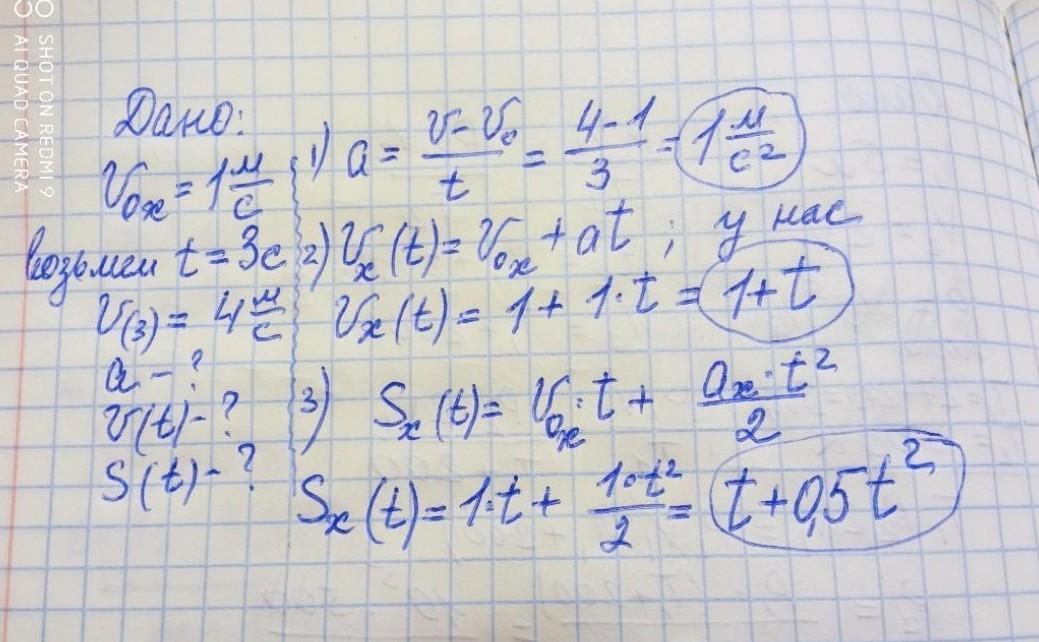 SHOT ON REDMI 9
AI QUAD CAMERA
Дано:
V₀ₓ = 1 м/с
возьмем t = 3с
V(3) = 4 м/с
a - ?
V(t) - ?
S(t) - ?
1) a = (v - v₀)/t = (4 - 1)/3 = 1 м/с²
2) Vₓ(t) = V₀ₓ + at ; у нас
Vₓ(t) = 1 + 1·t = 1 + t
3) Sₓ(t) = V₀ₓ·t + (aₓ·t²)/2
Sₓ(t) = 1·t + (1·t²)/2 = t + 0,5t²